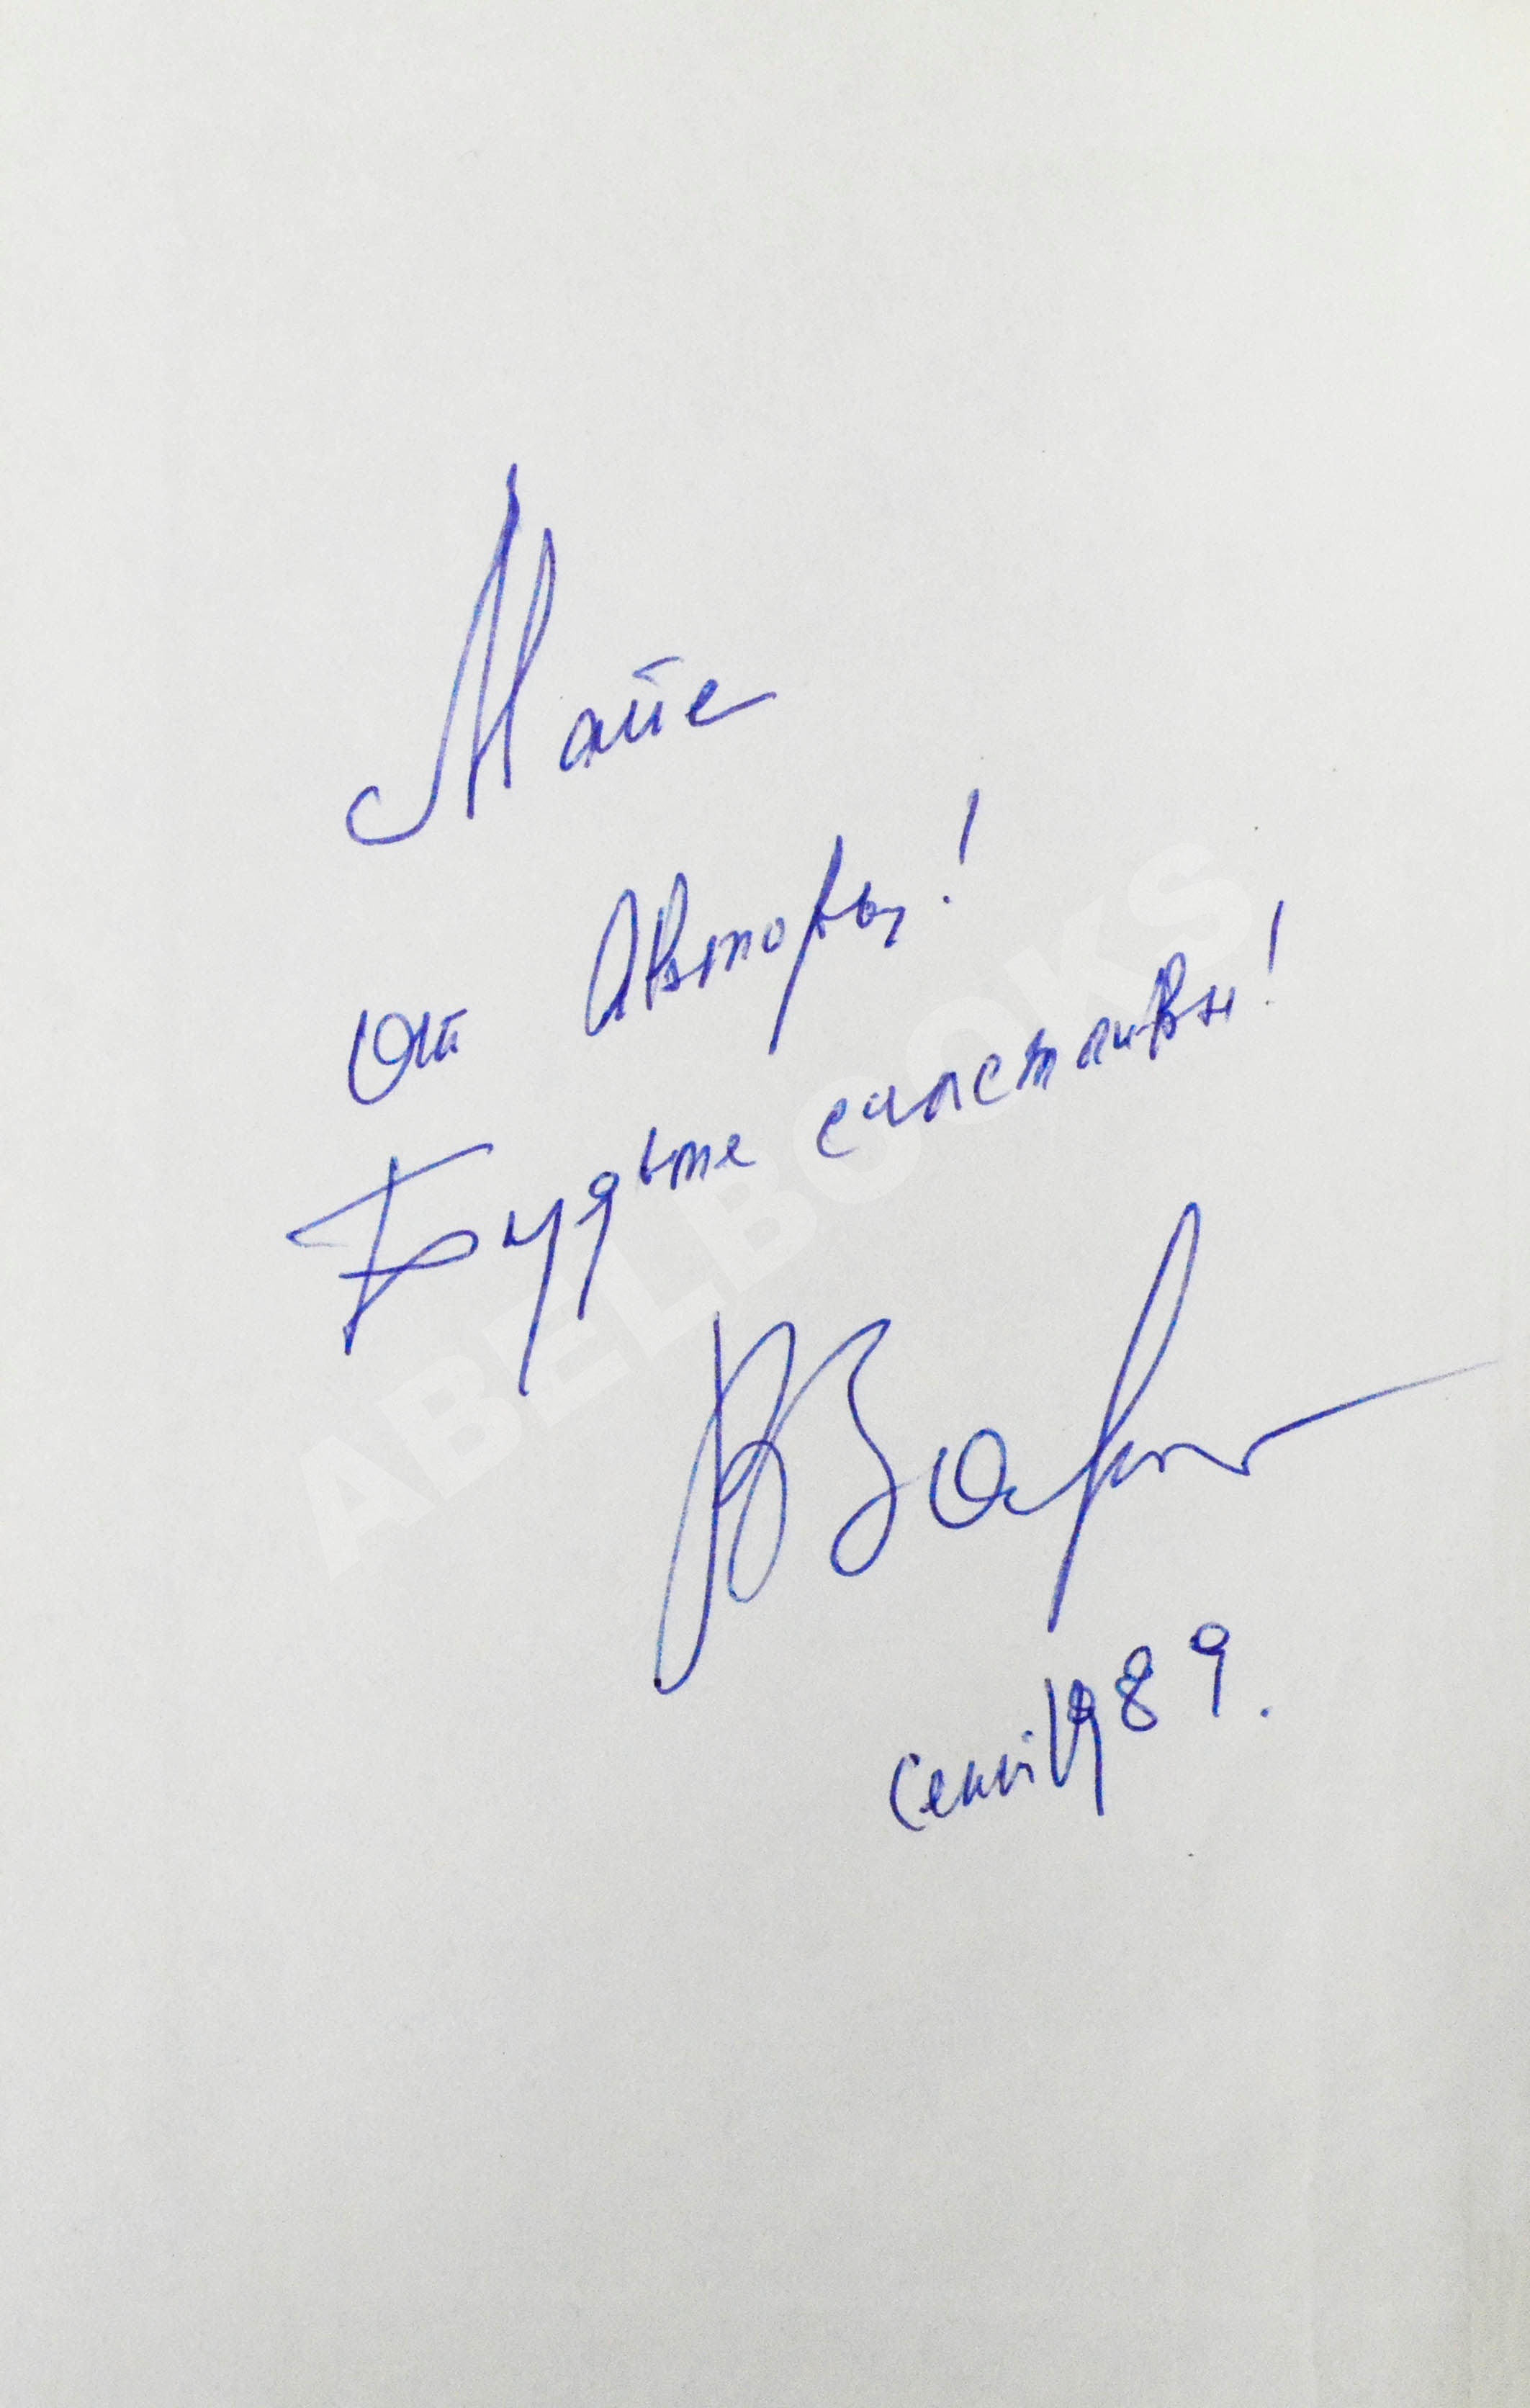 Майе
от Авторы!
Будьте счастливы!
сент 1989.
ABELBOOKS